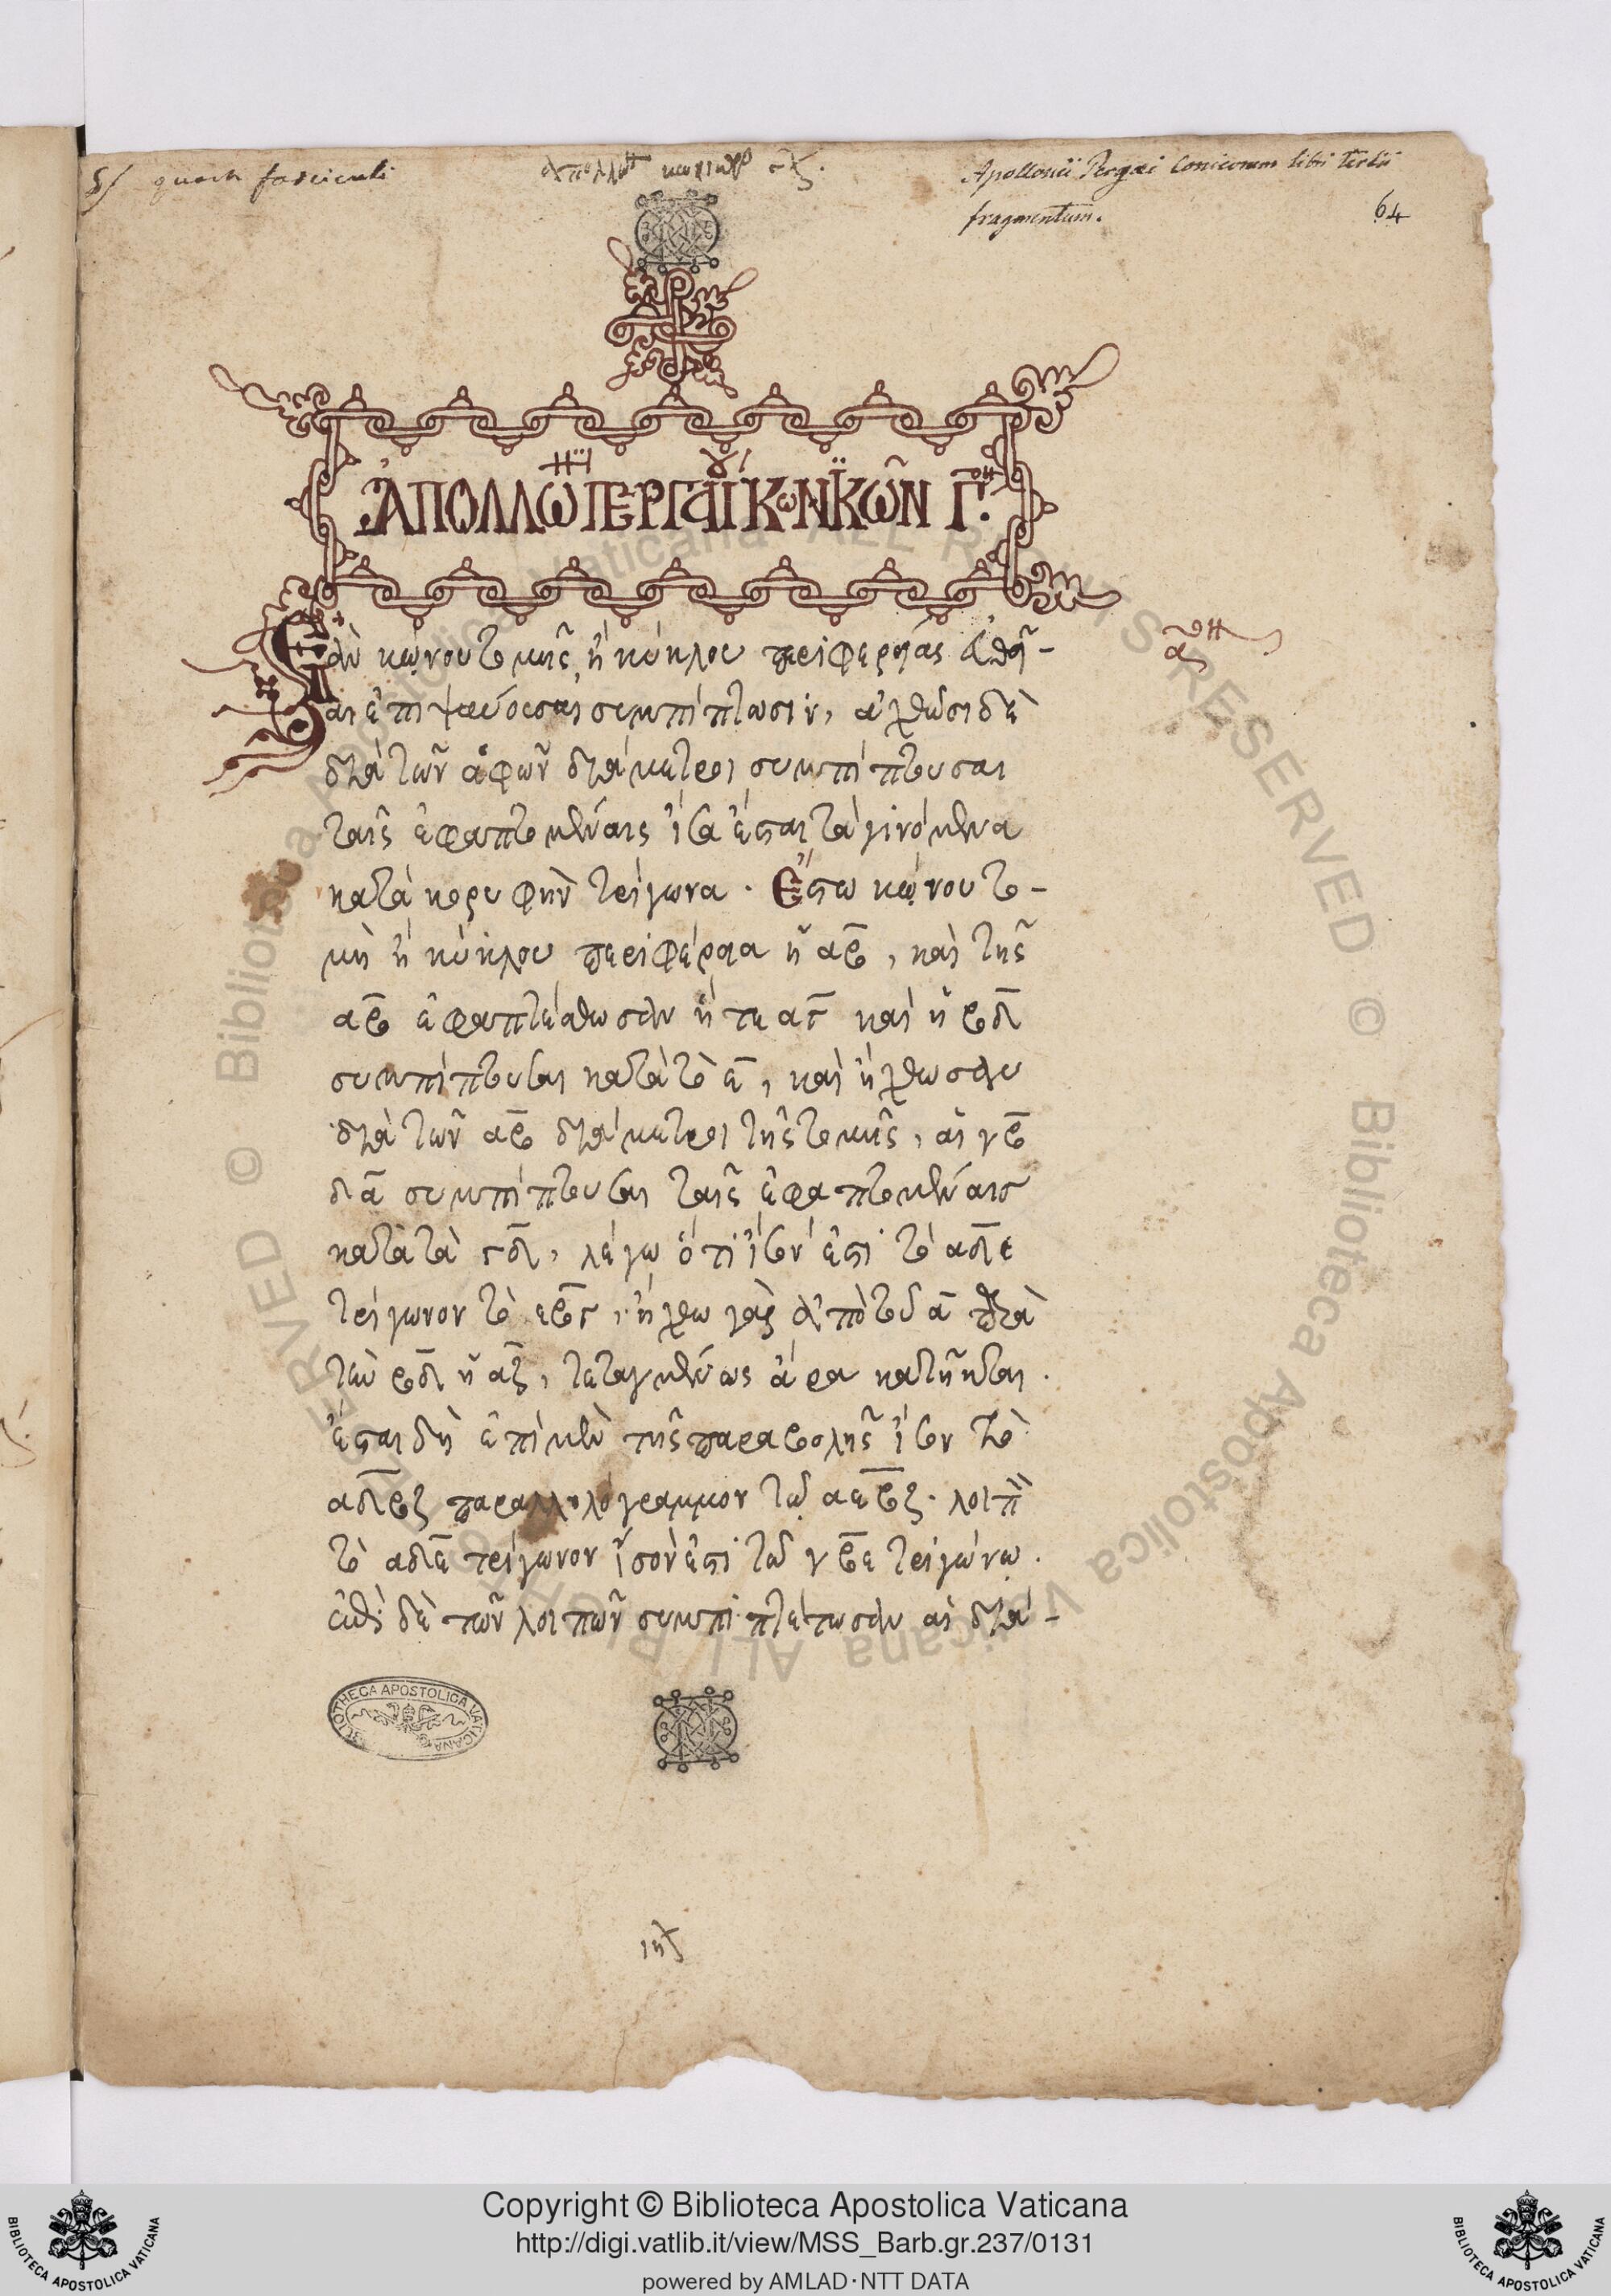 quarti fasciculi
Apollonii Pergaei Conicorum libri tertii
fragmentum.
64
ἈΠΟΛΛΩ ΠΕΡΓΑΊ ΚΩΝΪΚΩ͂Ν Γ
Ἐὰν κώνου τομῆς ἢ κύκλου περιφερείας εὐθεῖ-
αι ἐπιψαύουσαι συμπίπτωσιν, ἀχθῶσι δὲ
διὰ τῶν ἁφῶν διάμετροι συμπίπτουσαι
ταῖς ἐφαπτομέναις ἴσα ἔσται τὰ γινόμενα
κατὰ κορυφὴν τρίγωνα. Ἔστω κώνου το-
μὴ ἢ κύκλου περιφέρεια ἡ αβ, καὶ τῆς
αβ ἐφαπτέσθωσαν ἥ τε αγ καὶ ἡ βδ
συμπίπτουσαι κατὰ τὸ ε, καὶ ἤχθωσαν
διὰ τῶν αβ διάμετροι τῆς τομῆς, αἱ γβ
δα συμπίπτουσαι ταῖς ἐφαπτομέναις
κατὰ τὰ γδ, λέγω ὅτι ἴσον ἐστὶ τὸ αδε
τρίγωνον τὸ εβγ, ἤχθω γὰρ ἀπὸ τοῦ α παρὰ
τὴν βδ ἡ αζ, τεταγμένως ἄρα κατῆκται.
ἔσται δὴ ἐπὶ μὲν τῆς παραβολῆς ἴσον τὸ
αδβζ παραλληλόγραμμον τῷ αεβζ. λοιπ
τὸ αδε τρίγωνον ἴσον ἐστὶ τῶ γβε τριγώνῳ.
ἐπὶ δὲ τῶν λοιπῶν συμπιπτέτωσαν αἱ διά-
BIBLIOTHECA APOSTOLICA VATICANA
© Biblioteca Apostolica Vaticana ALL RIGHTS RESERVED © Biblioteca Apostolica Vaticana ALL RIGHTS RESERVED
Copyright © Biblioteca Apostolica Vaticana
http://digi.vatlib.it/view/MSS_Barb.gr.237/0131
powered by AMLAD·NTT DATA
BIBLIOTECA APOSTOLICA VATICANA
BIBLIOTECA APOSTOLICA VATICANA